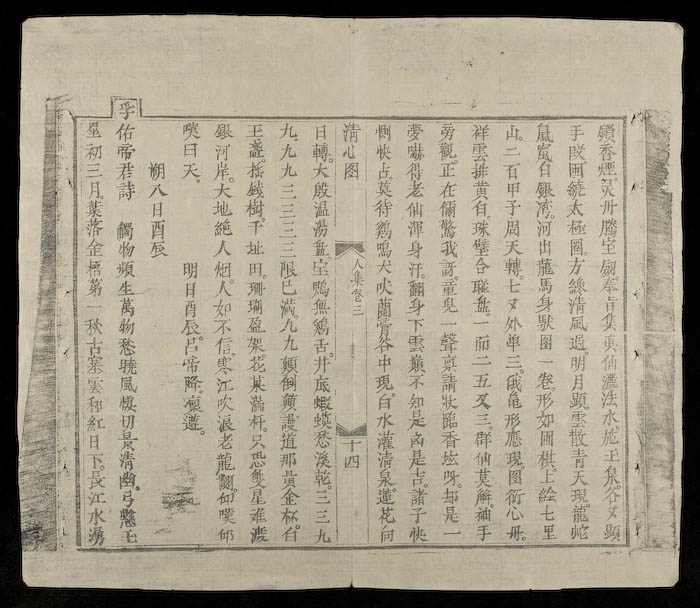 香煙灵丹騰宝奉旨集衆仙灑法水施玉泉谷又顯
手画繞太極圈方總清風過明月顯雲散青天現龍蛇
鼠嵐白銀湾河出龍馬身馱图一卷形如圍棋上絵七里
山二百甲子周天轉七又外单三俄龟形應現图衍心毋
祥雲排黄白珠璧合聨盘一而二五又三群仙莫解袖手
旁觀正在備驚我訝童兒一聲禀請臨香坛呀却是一
夢嚇得老仙渾身汗翻身下雲巔不知是㐫是吉諸子快
惻快占莫待鷄鳴犬吠蘭嘗谷中現白水灌清泉蓮花向
清心图 人集卷三 十四
日轉大殷温湯盘室鴨無鷄舌井底蝦蟆愁溪乾三三九
九九九三三三三限已满九九顛倒顛謾道那黄金杯白
玉盏摇錢樹千址田珊瑚盈架花菓满杆只恐雙星难渡
銀河岸大地絶人烟人如不信寒江吹浪老龍翻仰嘆仰
嘆曰天 明日酉辰吕帝降禀遵
朔八日酉辰
孚佑帝君詩 觸物頻生萬物愁曉風樓切景清幽弓懸玉
星初三月葉落金梧第一秋古塞雲和紅日下長江水湧